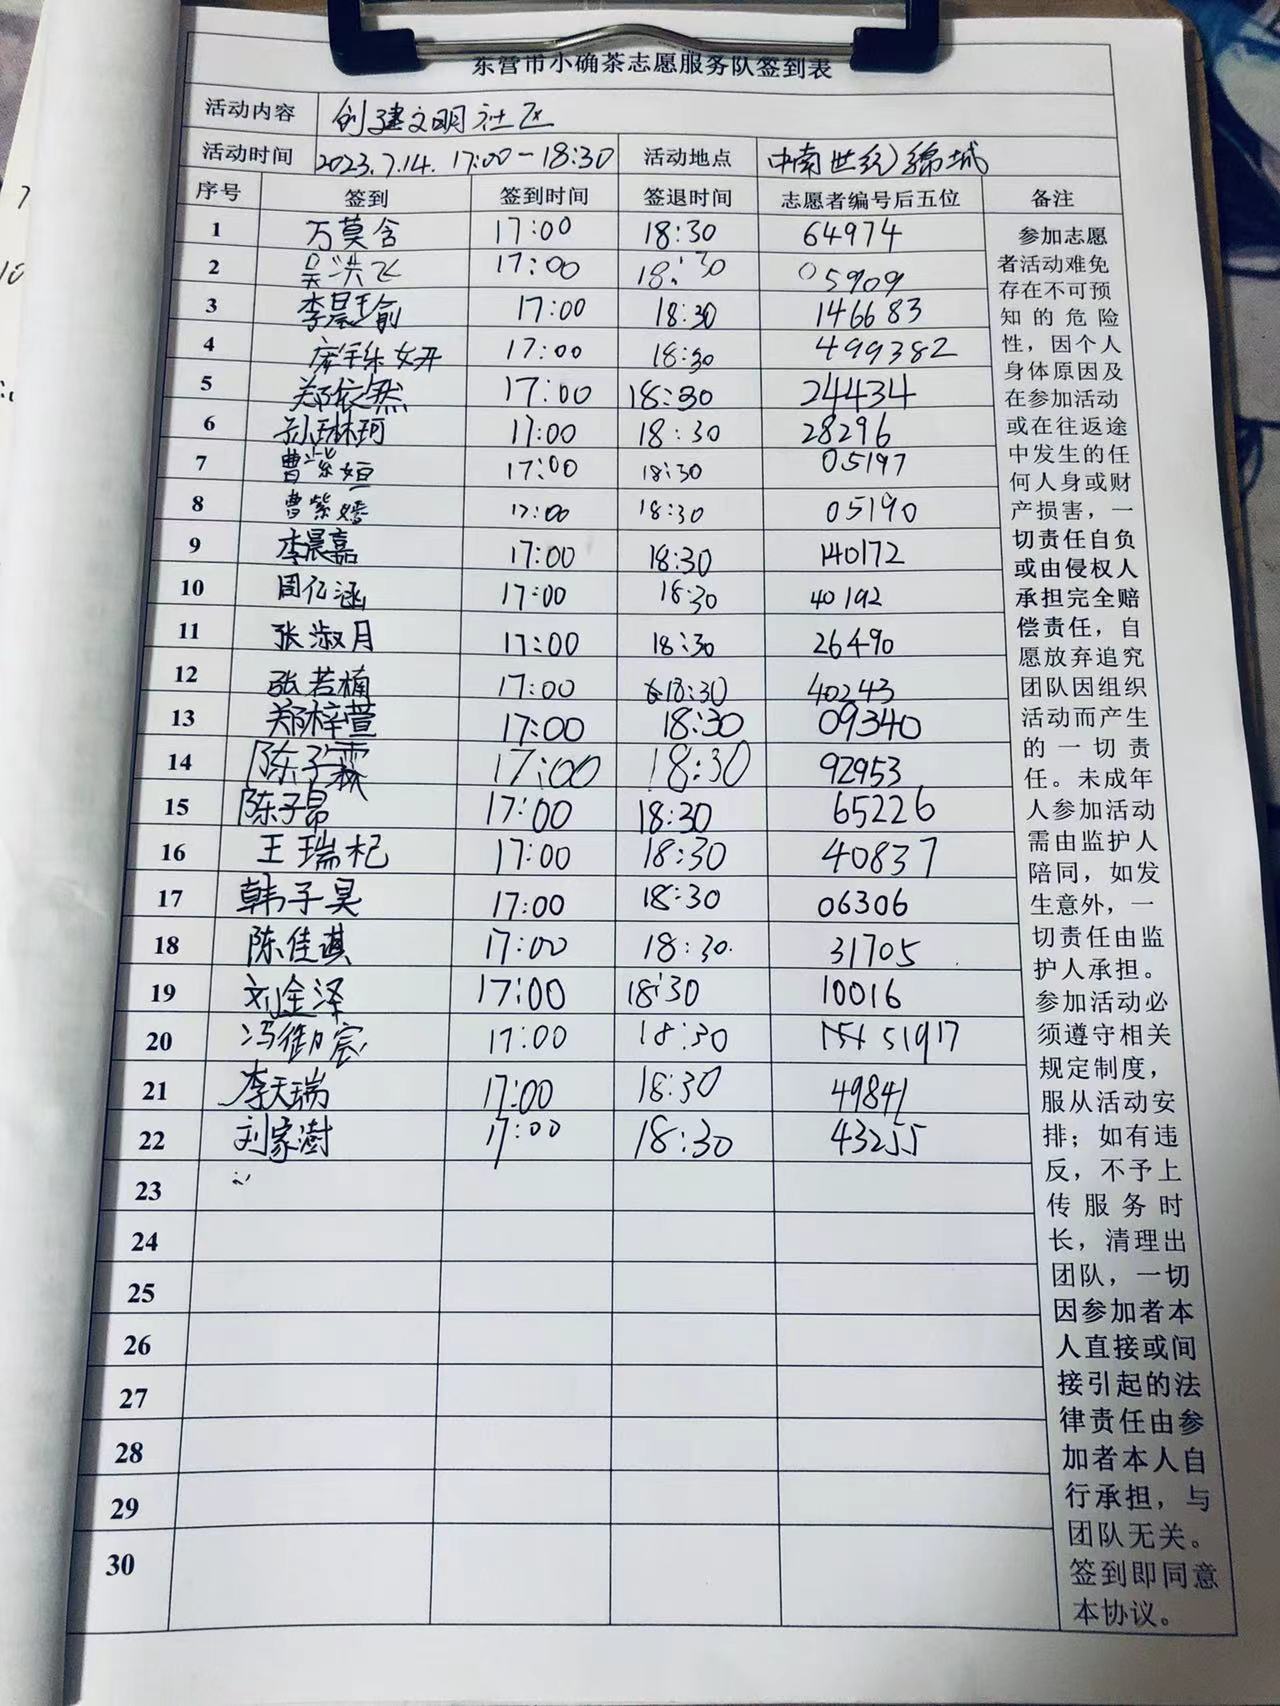 东营市小确茶志愿服务队签到表
活动内容 创建文明社区
活动时间 2023.7.14. 17:00-18:30 活动地点 中南世纪锦城
序号 签到 签到时间 签退时间 志愿者编号后五位 备注
1 万莫含 17:00 18:30 64974
2 吴洪飞 17:00 18:30 05909
3 李晨瑜 17:00 18:30 146683
4 17:00 18:30 499382
5 郑依然 17:00 18:30 24434
6 孙琳珂 17:00 18:30 28296
7 曹紫姮 17:00 18:30 05197
8 曹紫嫣 17:00 18:30 05190
9 李晨嘉 17:00 18:30 140172
10 周亿涵 17:00 18:30 40192
11 张淑月 17:00 18:30 26490
12 张若楠 17:00 18:30 40243
13 郑梓萱 17:00 18:30 09340
14 陈子霖 17:00 18:30 92953
15 陈子昂 17:00 18:30 65226
16 王瑞杞 17:00 18:30 40837
17 韩子昊 17:00 18:30 06306
18 陈佳淇 17:00 18:30. 31705
19 刘金泽 17:00 18:30 10016
20 冯御宸 17:00 18:30 51917
21 李天瑞 17:00 18:30 49841
22 刘家澍 17:00 18:30 43255
23
24
25
26
27
28
29
30
参加志愿
者活动难免
存在不可预
知的危险
性，因个人
身体原因及
在参加活动
或在往返途
中发生的任
何人身或财
产损害，一
切责任自负
或由侵权人
承担完全赔
偿责任，自
愿放弃追究
团队因组织
活动而产生
的一切责
任。未成年
人参加活动
需由监护人
陪同，如发
生意外，一
切责任由监
护人承担。
参加活动必
须遵守相关
规定制度，
服从活动安
排；如有违
反，不予上
传服务时
长，清理出
团队，一切
因参加者本
人直接或间
接引起的法
律责任由参
加者本人自
行承担，与
团队无关。
签到即同意
本协议。